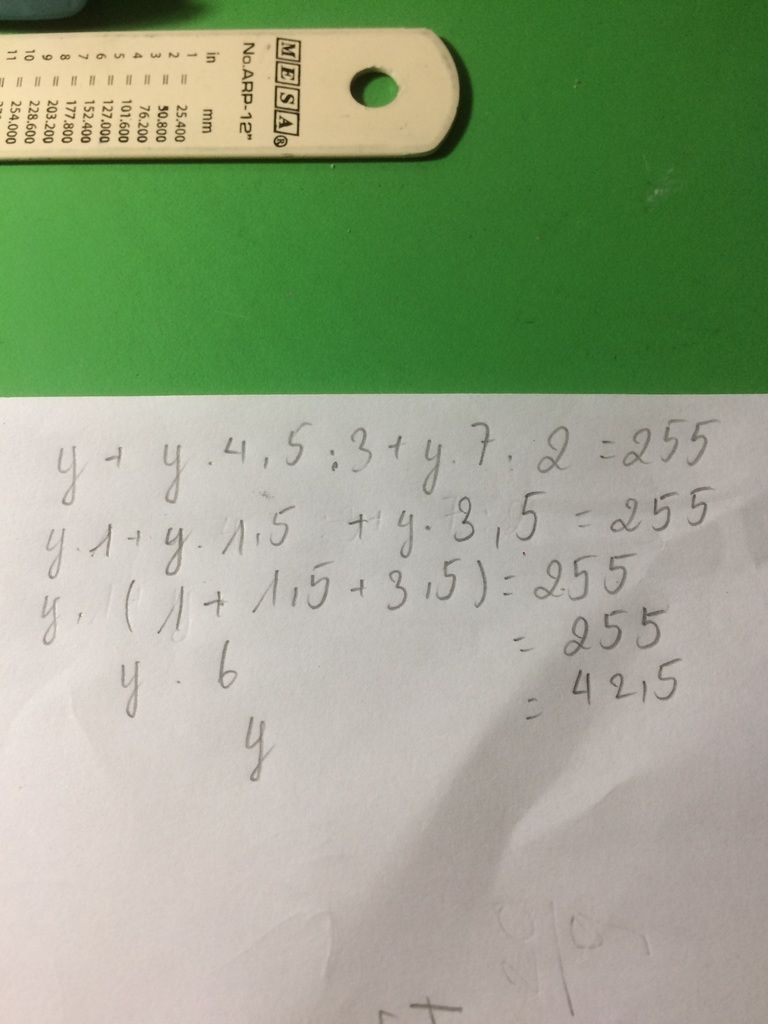 MESA®
No.ARP-12"
in mm
1 = 25.400
2 = 50.800
3 = 76.200
4 = 101.600
5 = 127.000
6 = 152.400
7 = 177.800
8 = 203.200
9 = 228.600
10 = 254.000
11 =
y + y . 4,5 : 3 + y . 7 : 2 = 255
y . 1 + y . 1,5 + y . 3,5 = 255
y . (1 + 1,5 + 3,5) = 255
y . 6 = 255
y = 42,5